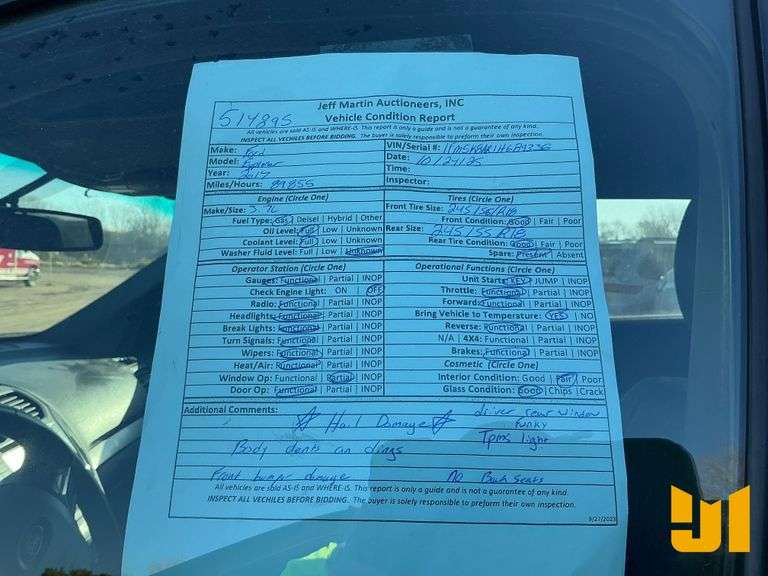 Jeff Martin Auctioneers, INC
514895 Vehicle Condition Report
All vehicles are sold AS-IS and WHERE-IS. This report is only a guide and is not a guarantee of any kind.
INSPECT ALL VECHILES BEFORE BIDDING. The buyer is solely responsible to preform their own inspection.
Make: Ford
Model: Explorer
Year: 2017
Miles/Hours: 89855
VIN/Serial #:
Date: 10/24/25
Time:
Inspector:
Engine (Circle One)
Make/Size: 3.7L
Fuel Type: Gas | Deisel | Hybrid | Other
Oil Level: Full | Low | Unknown
Coolant Level: Full | Low | Unknown
Washer Fluid Level: Full | Low | Unknown
Tires (Circle One)
Front Tire Size: 245/55/R18
Front Condition: Good | Fair | Poor
Rear Size: 245/55/R18
Rear Tire Condition: Good | Fair | Poor
Spare: Present | Absent
Operator Station (Circle One)
Gauges: Functional | Partial | INOP
Check Engine Light: ON | OFF
Radio: Functional | Partial | INOP
Headlights: Functional | Partial | INOP
Break Lights: Functional | Partial | INOP
Turn Signals: Functional | Partial | INOP
Wipers: Functional | Partial | INOP
Heat/Air: Functional | Partial | INOP
Window Op: Functional | Partial | INOP
Door Op: Functional | Partial | INOP
Operational Functions (Circle One)
Unit Starts: KEY | JUMP | INOP
Throttle: Functional | Partial | INOP
Forward: Functional | Partial | INOP
Bring Vehicle to Temperature: YES | NO
Reverse: Functional | Partial | INOP
N/A | 4X4: Functional | Partial | INOP
Brakes: Functional | Partial | INOP
Cosmetic (Circle One)
Interior Condition: Good | Fair | Poor
Glass Condition: Good | Chips | Crack
Additional Comments:
Hail Damage
driver rear window
funky
Tpms light
Body dents an dings
Front bumper damage
No Back Seats
All vehicles are sold AS-IS and WHERE-IS. This report is only a guide and is not a guarantee of any kind.
INSPECT ALL VECHILES BEFORE BIDDING. The buyer is solely responsible to preform their own inspection.
3/27/2023